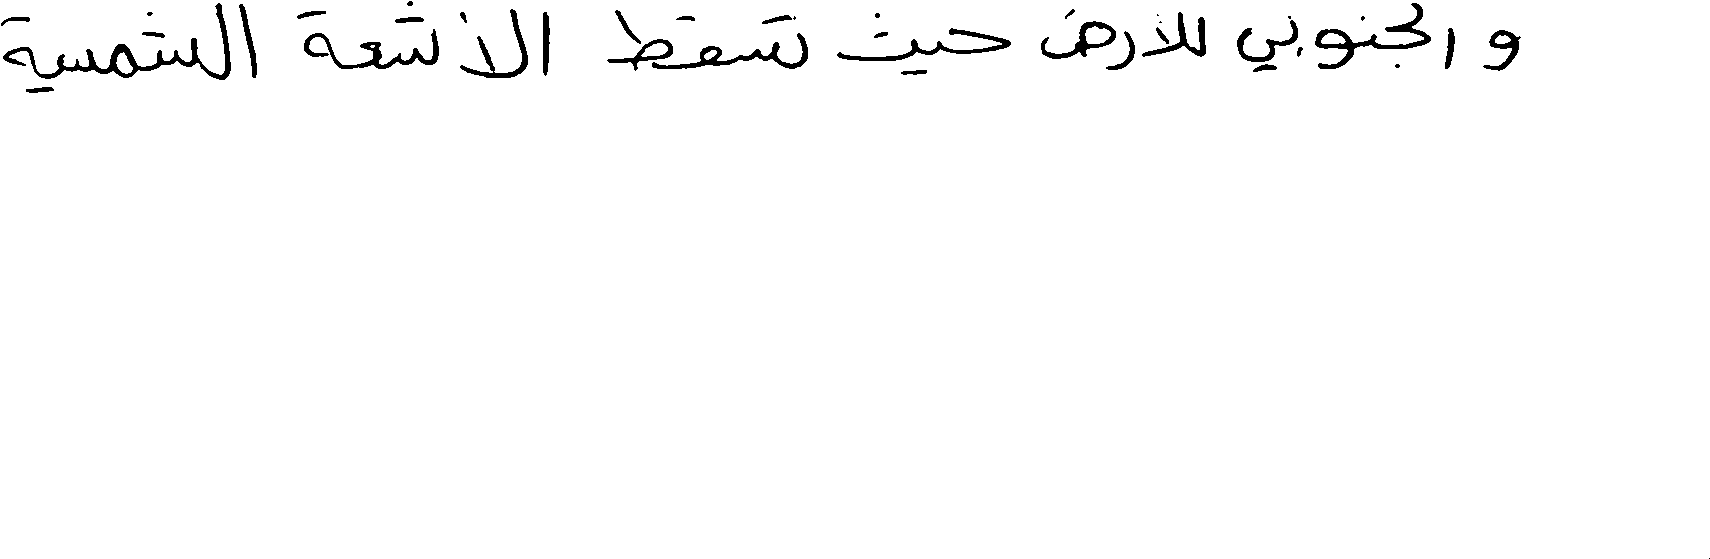 و الجنوبي للأرض حيث تسقط الأشعة الشمسية